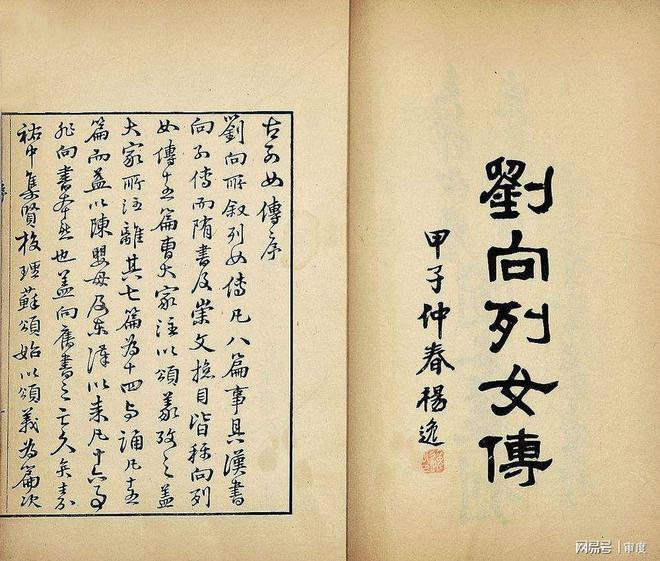 劉向列女傳
甲子仲春楊逸
古列女傳序
劉向所叙列女傳凡八篇事具漢書
向列傳而隋書及崇文總目皆稱向列
女傳十五篇曹大家注以頌義考之蓋
大家所注離其七篇為十四与頌凡十五
篇而益以陳嬰母及東漢以来凡十六事
非向書本然也蓋向舊書之亡久矣嘉
祐中集賢校理蘇頌始以頌義為篇次
网易号 | 审度